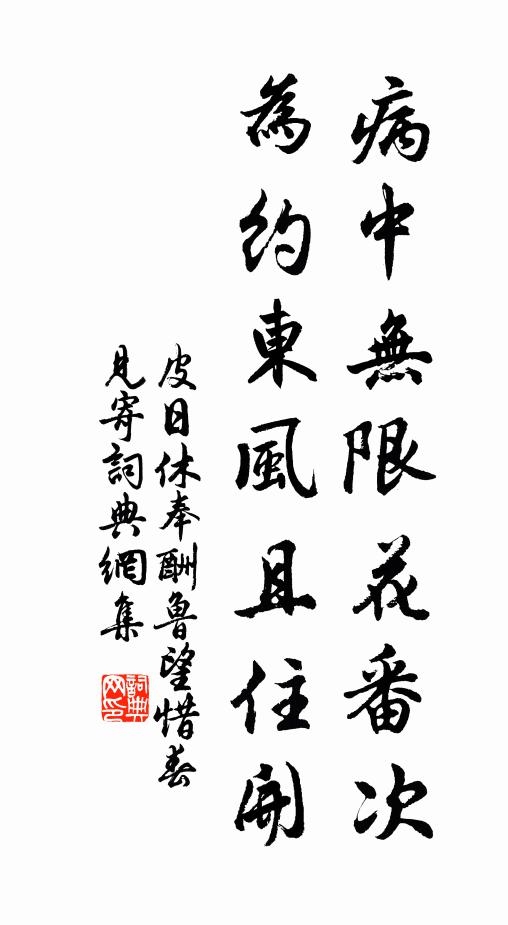 病中無限花番次
為約東風且住開
皮日休奉酬魯望惜春
見寄詞典網集
詞典
网印